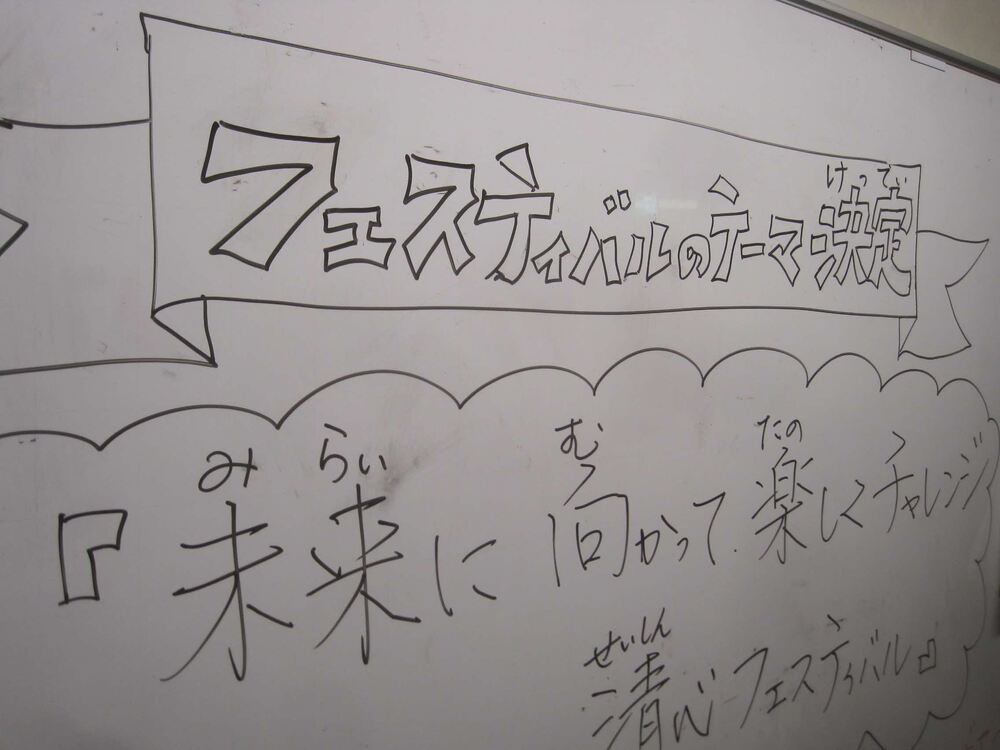 けってい
フェスティバルのテーマ決定
み らい む たの
『未来に向かって楽しくチャレンジ
せいしん
清心フェスティバル』